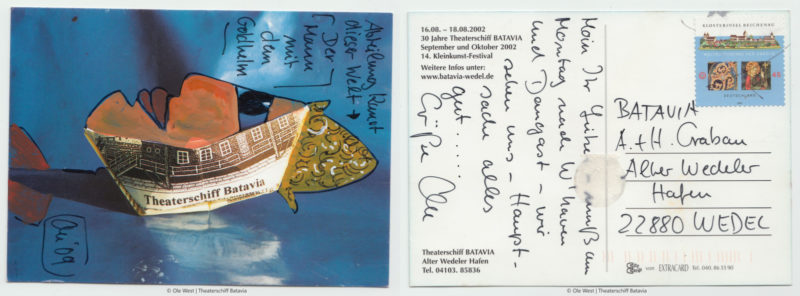 Abteilung Kunst
dieser Welt →
(Der
Mann
mit
dem
Goldhelm
Theaterschiff Batavia
Oli 09
© Ole West | Theaterschiff Batavia
16.08. – 18.08.2002
30 Jahre Theaterschiff BATAVIA
September und Oktober 2002
14. Kleinkunst-Festival
Weitere Infos unter:
www.batavia-wedel.de
Moin Ihr Lieben – muß am
Montag nach W'haven
und Dangast – wir
sehen uns – Haupt-
sache alles
gut....
Grüße Ole
Theaterschiff BATAVIA
Alter Wedeler Hafen
Tel. 04103. 85836
KLOSTERINSEL REICHENAU
DEUTSCHLAND
45
BATAVIA
A. + H. Grabau
Alter Wedeler
Hafen
22880 WEDEL
von EXTRACARD Tel. 040. 86 53 90
© Ole West | Theaterschiff Batavia